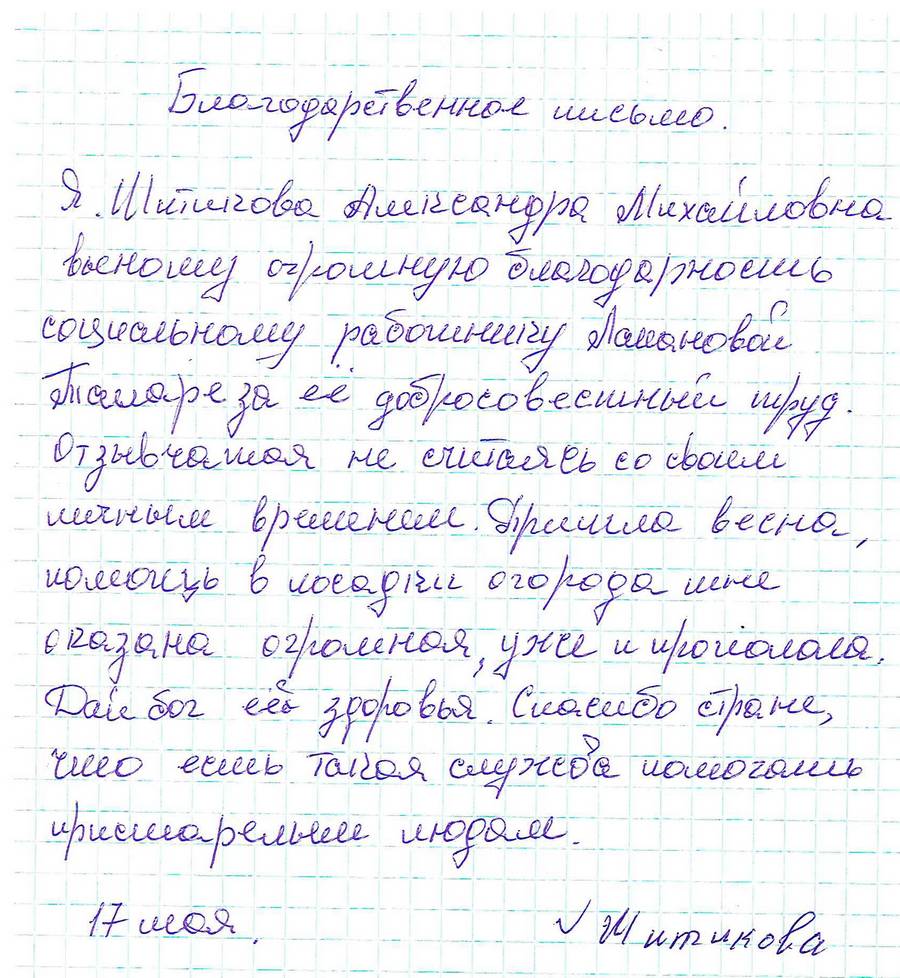 Благодарственное письмо.
Я. Шитикова Александра Михайловна
выношу огромную благодарность
социальному работнику Ламановой
Тамаре за её добросовестный труд.
Отзывчатая не считаясь со своим
личным временем. Пришла весна,
помощь в посадки огорода мне
оказана огромная, уже и прополола.
Дай бог ей здоровья. Спасибо стране,
что есть такая служба помогать
пристарелым людям.
17 мая.
Шитикова